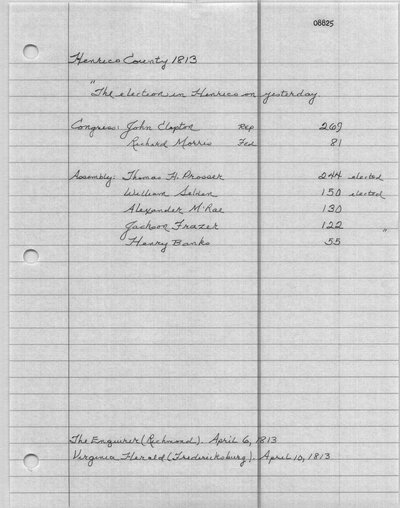 08825
Henrico County 1813
"The election in Henrico on yesterday.
Congress: John Clopton Rep 269
Richard Morris Fed 81
Assembly: Thomas H. Prosser 244 elected
William Selden 150 elected
Alexander McRae 130
Jackson Frazer 122 "
Henry Banks 55
The Enquirer (Richmond). April 6, 1813
Virginia Herald (Fredericksburg). April 10, 1813